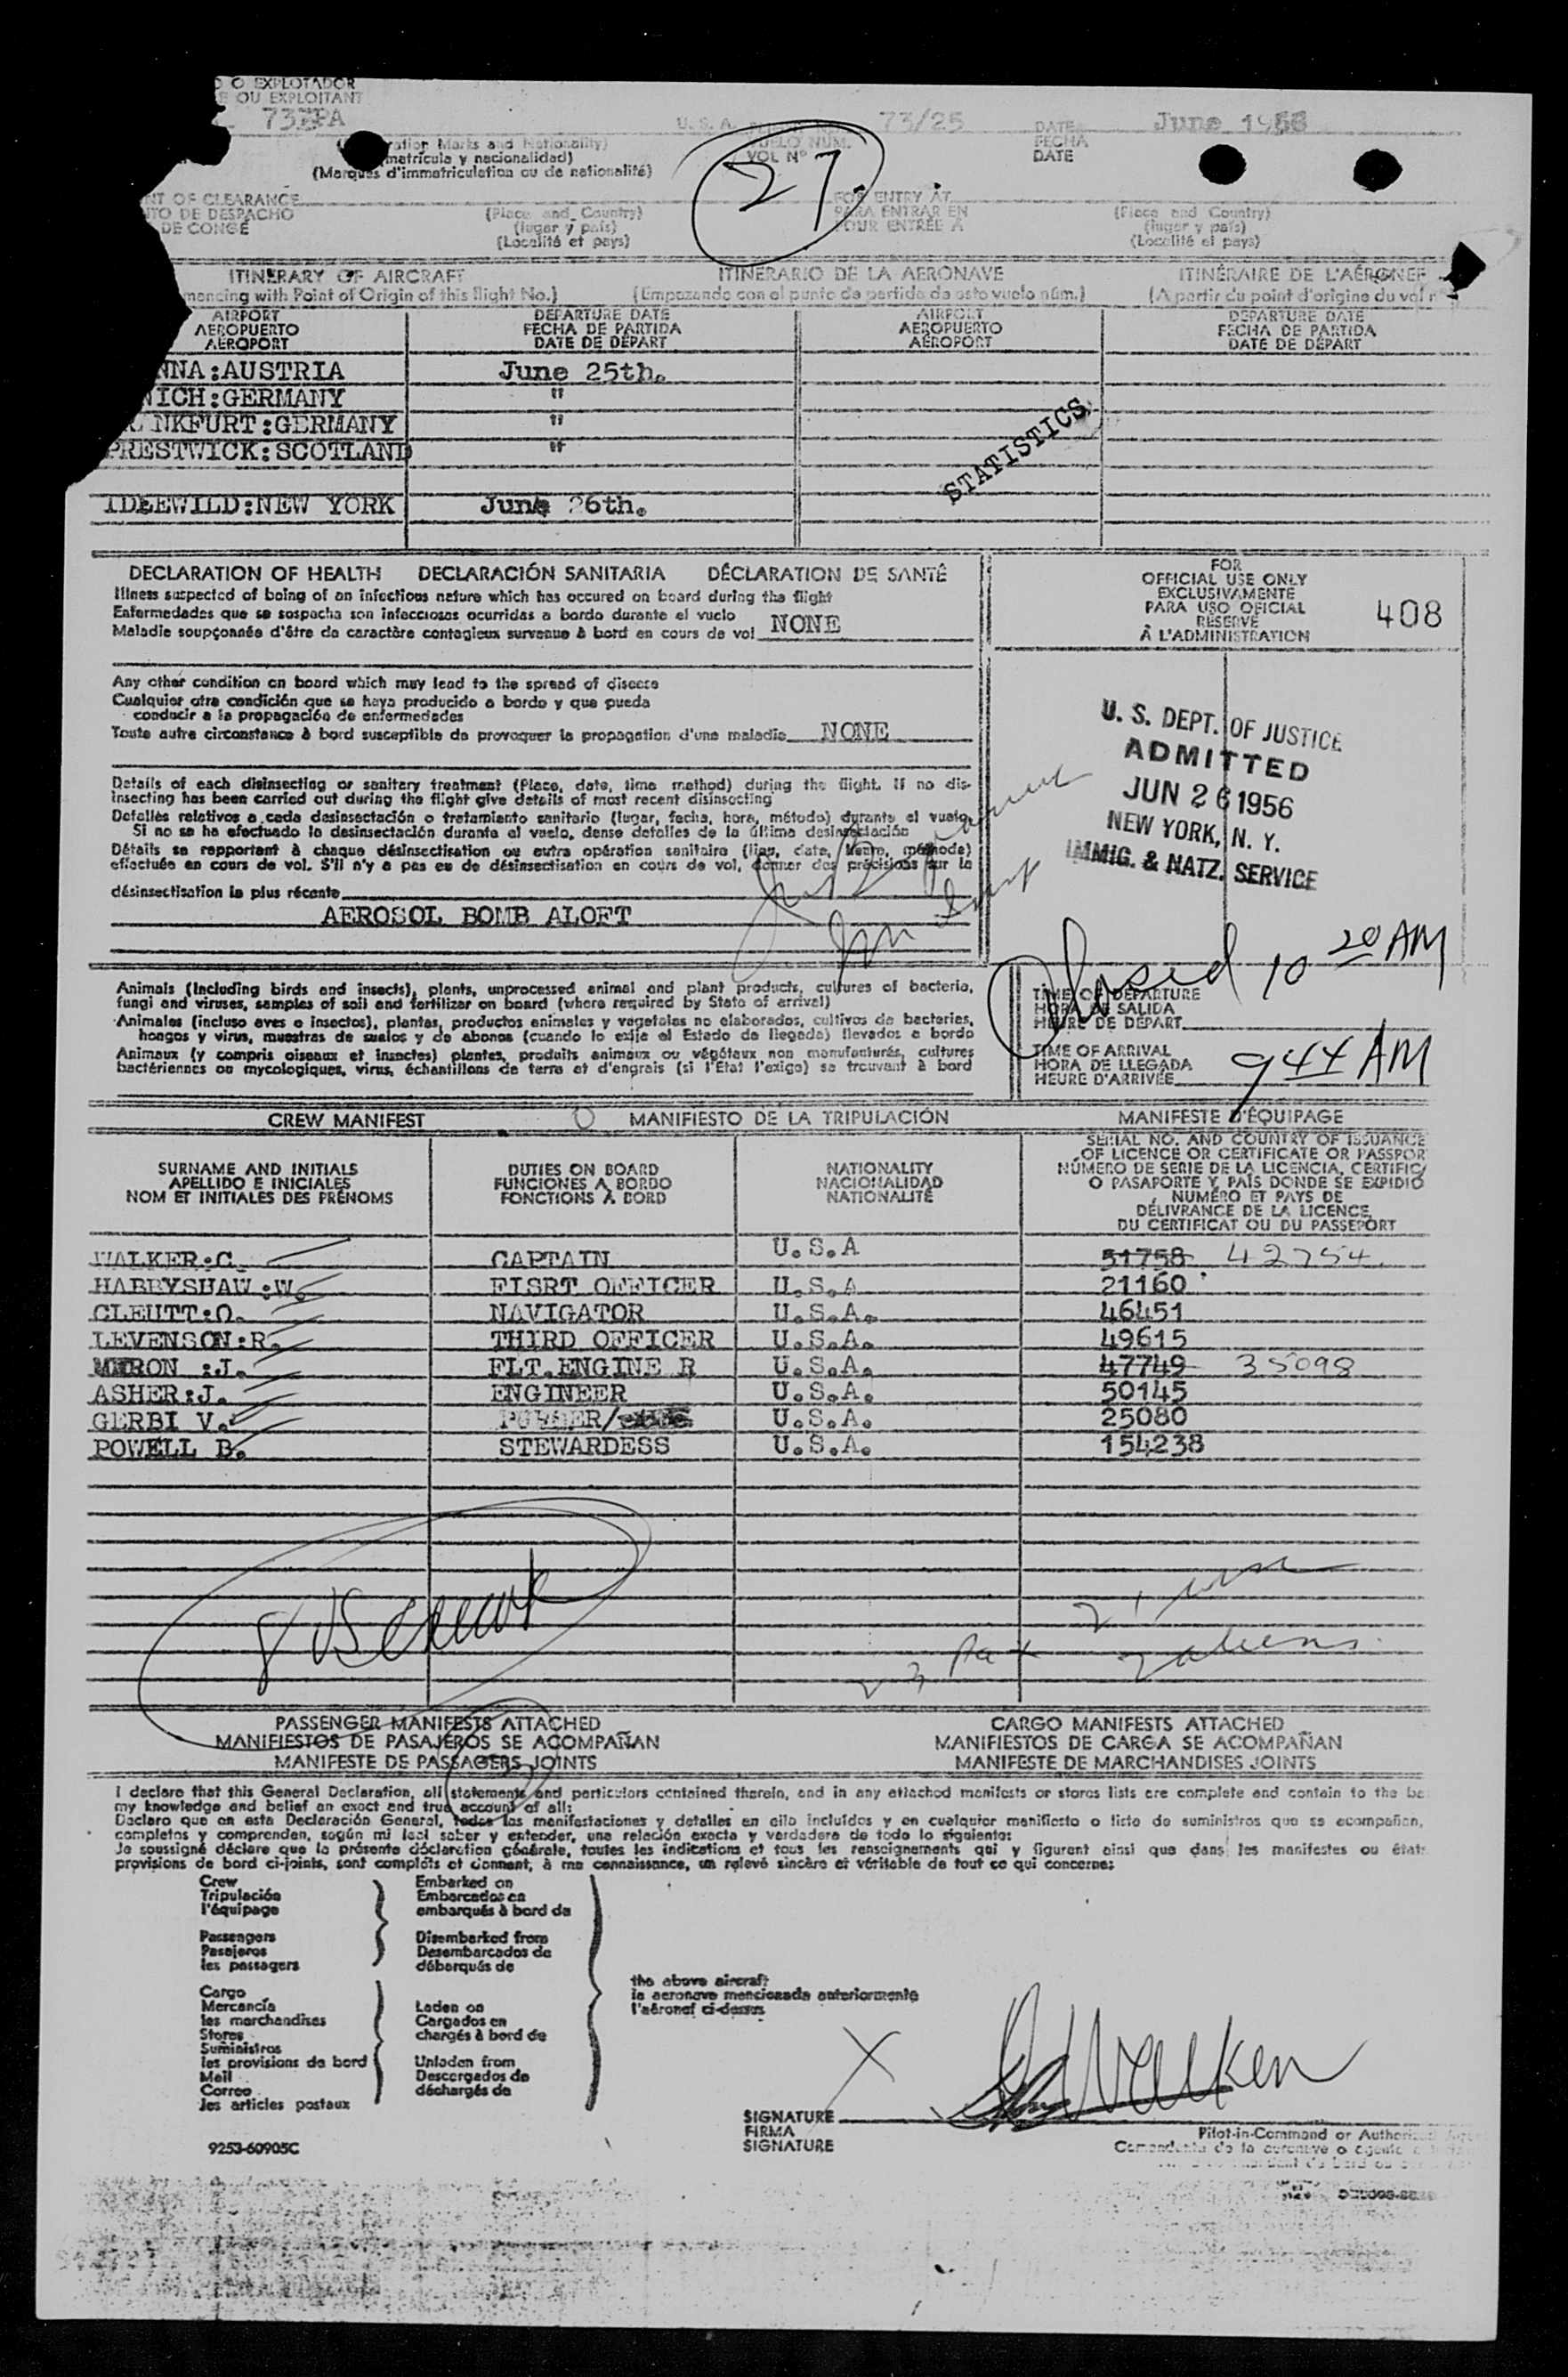 O EXPLOTADOR
OU EXPLOITANT
U. S. A. 73/25 DATE June 1956
VUELO NÚM. FECHA
VOL Nº DATE
27
(matrícula y nacionalidad)
(Marques d'immatriculation ou de nationalité)
OF CLEARANCE FOR ENTRY AT
DE DESPACHO (Place and Country) PARA ENTRAR EN (Place and Country)
DE CONGÉ (lugar y país) POUR ENTRÉE À (lugar y país)
(Localité et pays) (Localité et pays)
ITINERARY OF AIRCRAFT ITINERARIO DE LA AERONAVE ITINÉRAIRE DE L'AÉRONEF
mencing with Point of Origin of this flight No.) (Empezando con el punto de partida de este vuelo núm.) (A partir du point d'origine du vol
AIRPORT DEPARTURE DATE AIRPORT DEPARTURE DATE
AEROPUERTO FECHA DE PARTIDA AEROPUERTO FECHA DE PARTIDA
AÉROPORT DATE DE DÉPART AÉROPORT DATE DE DÉPART
NNA:AUSTRIA June 25th.
NICH:GERMANY "
NKFURT:GERMANY "
PRESTWICK:SCOTLAND "
STATISTICS
IDLEWILD:NEW YORK June 26th.
DECLARATION OF HEALTH DECLARACIÓN SANITARIA DÉCLARATION DE SANTÉ
Illness suspected of being of an infectious nature which has occured on board during the flight
Enfermedades que se sospecha son infecciosas ocurridas a bordo durante el vuelo
Maladie soupçonnée d'être de caractère contagieux survenue à bord en cours de vol NONE
FOR
OFFICIAL USE ONLY
EXCLUSIVAMENTE
PARA USO OFICIAL
RÉSERVÉ
À L'ADMINISTRATION
408
Any other condition on board which may lead to the spread of disease
Cualquier otra condición que se haya producido a bordo y que pueda
conducir a la propagación de enfermedades
Toute autre circonstance à bord susceptible de provoquer la propagation d'une maladie NONE
U. S. DEPT. OF JUSTICE
ADMITTED
JUN 26 1956
NEW YORK, N. Y.
IMMIG. & NATZ. SERVICE
Details of each disinsecting or sanitary treatment (Place, date, time method) during the flight. If no dis-
insecting has been carried out during the flight give details of most recent disinsecting
Detalles relativos a cada desinsectación o tratamiento sanitario (lugar, fecha, hora, método) durante el vuelo.
Si no se ha efectuado la desinsectación durante el vuelo, dense detalles de la última desinsectación
Détails se rapportant à chaque désinsectisation ou autre opération sanitaire (lieu, date, heure, méthode)
effectuée en cours de vol. S'il n'y a pas eu de désinsectisation en cours de vol, donner des précisions sur la
désinsectisation la plus récente
AEROSOL BOMB ALOFT
Closed 10 20 AM
Animals (Including birds and insects), plants, unprocessed animal and plant products, cultures of bacteria,
fungi and viruses, samples of soil and fertilizer on board (where required by State of arrival)
Animales (incluso aves e insectos), plantas, productos animales y vegetales no elaborados, cultivos de bacterias,
hongos y virus, muestras de suelos y de abonos (cuando lo exija el Estado de llegada) llevados a bordo
Animaux (y compris oiseaux et insectes) plantes, produits animaux ou végétaux non manufacturés, cultures
bactériennes ou mycologiques, virus, échantillons de terre et d'engrais (si l'État l'exige) se trouvant à bord
TIME OF DEPARTURE
HORA DE SALIDA
HEURE DE DÉPART
TIME OF ARRIVAL
HORA DE LLEGADA
HEURE D'ARRIVÉE 9 44 AM
CREW MANIFEST MANIFIESTO DE LA TRIPULACIÓN MANIFESTE D'ÉQUIPAGE
SURNAME AND INITIALS
APELLIDO E INICIALES
NOM ET INITIALES DES PRÉNOMS
DUTIES ON BOARD
FUNCIONES A BORDO
FONCTIONS À BORD
NATIONALITY
NACIONALIDAD
NATIONALITÉ
SERIAL NO. AND COUNTRY OF ISSUANCE
OF LICENCE OR CERTIFICATE OR PASSPOR
NÚMERO DE SERIE DE LA LICENCIA, CERTIFIC
O PASAPORTE Y PAÍS DONDE SE EXPIDIÓ
NUMÉRO ET PAYS DE
DÉLIVRANCE DE LA LICENCE,
DU CERTIFICAT OU DU PASSEPORT
WALKER:C. CAPTAIN U.S.A 51758 42754
HABBYSHAW:W. FISRT OFFICER U.S.A 21160
CLEUTT:O. NAVIGATOR U.S.A. 46451
LEVENSON:R. THIRD OFFICER U.S.A. 49615
MYRON :J. FLT.ENGINE R U.S.A. 47749 35098
ASHER:J. ENGINEER U.S.A. 50145
GERBI V. PURSER/ U.S.A. 25080
POWELL B. STEWARDESS U.S.A. 154238
8 US crew
21 usc
23 Pax 2 aliens
PASSENGER MANIFESTS ATTACHED CARGO MANIFESTS ATTACHED
MANIFIESTOS DE PASAJEROS SE ACOMPAÑAN MANIFIESTOS DE CARGA SE ACOMPAÑAN
MANIFESTE DE PASSAGERS JOINTS MANIFESTE DE MARCHANDISES JOINTS
I declare that this General Declaration, all statements and particulars contained therein, and in any attached manifests or stores lists are complete and contain to the be
my knowledge and belief an exact and true account of all:
Declaro que en esta Declaración General, todas las manifestaciones y detalles en ella incluídos y en cualquier manifiesto o lista de suministros que se acompañan,
completos y comprenden, según mi leal saber y entender, una relación exacta y verdadera de todo lo siguiente:
Je soussigné déclare que la présente déclaration générale, toutes les indications et tous les renseignements qui y figurent ainsi que dans les manifestes ou état
provisions de bord ci-joints, sont complets et donnent, à ma connaissance, un relevé sincère et véritable de tout ce qui concerne:
Crew Embarked on
Tripulación Embarcados en
l'équipage embarqués à bord de
Passengers Disembarked from
Pasajeros Desembarcados de
les passagers débarqués de
the above aircraft
la aeronave mencionada anteriormente
l'aéronef ci-dessus
Cargo
Mercancía Laden on
les marchandises Cargados en
Stores chargés à bord de
Suministros
les provisions de bord Unladen from
Mail Descargados de
Correo déchargés de
les articles postaux
X
SIGNATURE Walker
FIRMA
SIGNATURE
Pilot-in-Command or Authori
Comandante de la aeronave o agente
9253-60905C